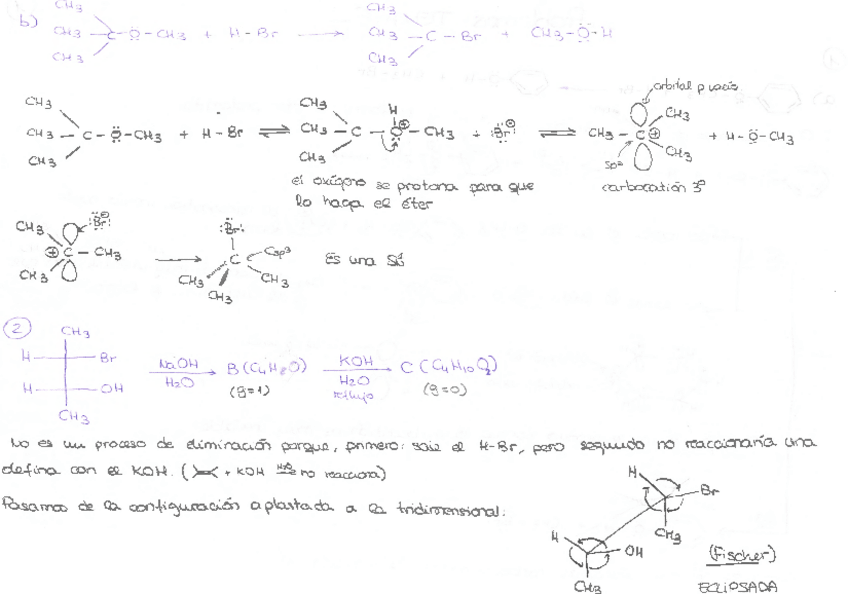 b)
CH3
CH3 — C — Ö — CH3 + H — Br → CH3 — C — Br + CH3 — Ö — H
CH3
CH3
CH3
CH3
CH3 — C — Ö — CH3 + H — Br ⇌ CH3 — C — O⊕ — CH3 + Br⊖ ⇌ CH3 — C⊕ + H — Ö — CH3
CH3
CH3
H
CH3
orbital p vacío
CH3
CH3
sp2
el oxígeno se protona para que
lo haga el éter
carbocatión 3º
CH3
⊕ C — CH3
CH3
Br⊖
→
Br
C
Csp3
CH3
CH3
CH3
Es una
2
CH3
H Br
H OH
CH3
NaOH
H2O
B (C4H8O)
(g=1)
KOH
H2O
reflujo
C (C4H10O2)
(g=0)
No es un proceso de eliminación porque, primero: sale el H-Br, pero segundo no reaccionaría una
olefina con el KOH. ( + KOH no reacciona)
Pasamos de la configuración aplastada a la tridimensional:
H
Br
CH3
H
OH
CH3
(Fischer)
ECLIPSADA